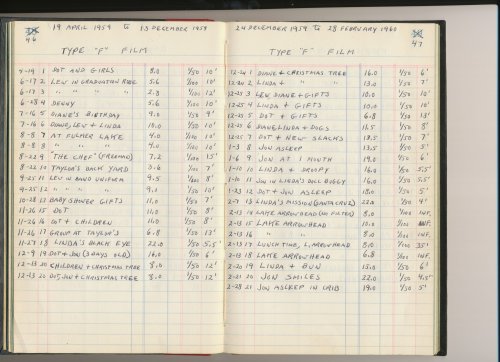 46
19 APRIL 1959 TO 13 DECEMBER 1959
TYPE "F" FILM
4-19 1 DOT AND GIRLS 8.0 1/50 10'
6-17 2 LEW IN GRADUATION ROBE 5.6 1/100 10'
6-17 3 " " " " 2.8 1/100 12'
6-28 4 DENNY 5.6 1/100 10'
7-16 5 DIANE'S BIRTHDAY 9.0 1/50 9'
7-16 6 DOWD, LEW + LINDA 10.0 1/50 8'
8-8 7 AT FULMER LAKE 4.0 1/100 10'
8-8 8 " " " 4.0 1/100 10'
8-22 9 "THE CHEF" (FREEMAN) 7.2 1/100 15'
8-22 10 TAYLOR'S BACK YARD 3.6 1/100 7'
9-25 11 LEW IN BAND UNIFORM 9.5 8'
9-25 12 " " " " 9.1 1/50 10'
10-28 13 BABY SHOWER GIFTS 11.0 1/50 7'
11-26 15 DOT 11.0 1/50 8'
11-26 16 DOT + CHILDREN 11.0 1/50 8'
11-26 17 GROUP AT TAYLOR'S 6.8 1/50 13'
11-27 18 LINDA'S BLACK EYE 22.0 1/50 5.5'
12-9 19 DOT + JON (3 DAYS OLD) 16.0 1/50 6'
12-13 20 CHILDREN + CHRISTMAS TREE 8.0 1/50 12'
12-13 20 DOT, JON + CHRISTMAS TREE 8.0 1/50 12'
47
24 DECEMBER 1959 TO 28 FEBRUARY 1960
TYPE "F" FILM
12-24 1 DIANE + CHRISTMAS TREE 16.0 1/50 6'
12-24 2 LINDA + " " 13.0 1/50 7'
12-25 3 LEW DIANE + GIFTS 10.0 1/50 10'
12-25 4 LINDA + GIFTS 10.0 1/50 10'
12-25 5 DOT + GIFTS 6.8 1/50 13'
12-25 6 DIANE LINDA + DOGS 11.5 1/50 8'
12-01 7 DOT + NEW SLACKS 13.5 1/50 7'
1-3 8 JON ASLEEP 13.5 1/50 5'
1-6 9 JON AT 1 MONTH 19.0 1/50 6'
1-10 10 LINDA + DROOPY 16.0 1/50 5.5'
1-10 11 JON IN LINDA'S DOLL BUGGY 16.0 1/50 5.5'
1-23 12 DOT + JON ASLEEP 18.0 1/50 5'
2-7 13 LINDA'S MISSION (SANTA CRUZ) 22.0 1/50 4'
2-13 14 LAKE ARROWHEAD (NO FILTER) 8.0 1/100 INF.
2-13 15 LAKE ARROWHEAD 10.0 1/100 INF.
2-13 16 " " 8.0 1/100 INF.
2-13 17 LUNCH TIME, L. ARROWHEAD 8.0 1/100 35'
2-13 18 LAKE ARROWHEAD 6.8 1/100 INF.
2-20 19 LINDA + BUN 15.0 1/50 6'
2-21 20 JON SMILES 22.0 1/50 4.5'
2-28 21 JON ASLEEP IN CRIB 19.0 1/50 5'